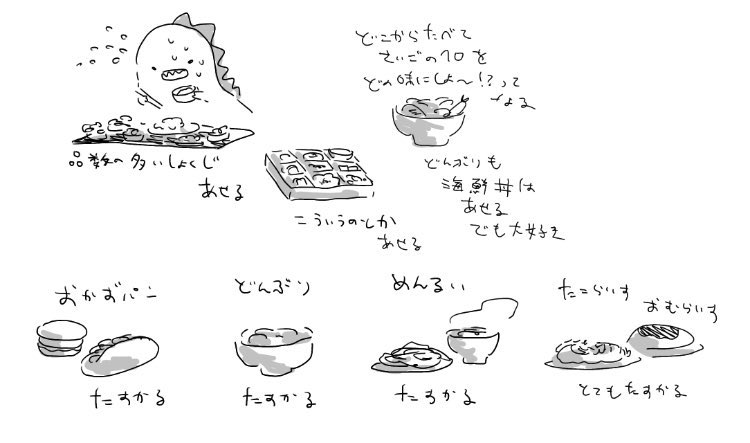 どこからたべて
さいごの一口を
どの味にしよ〜!?って
なる
品数の多いしょくじ
あせる
こういうのとか
あせる
どんぶりも
海鮮丼は
あせる
でも大好き
おかずパン
たすかる
どんぶり
たすかる
めんるい
たすかる
たこらいす
おむらいす
とてもたすかる